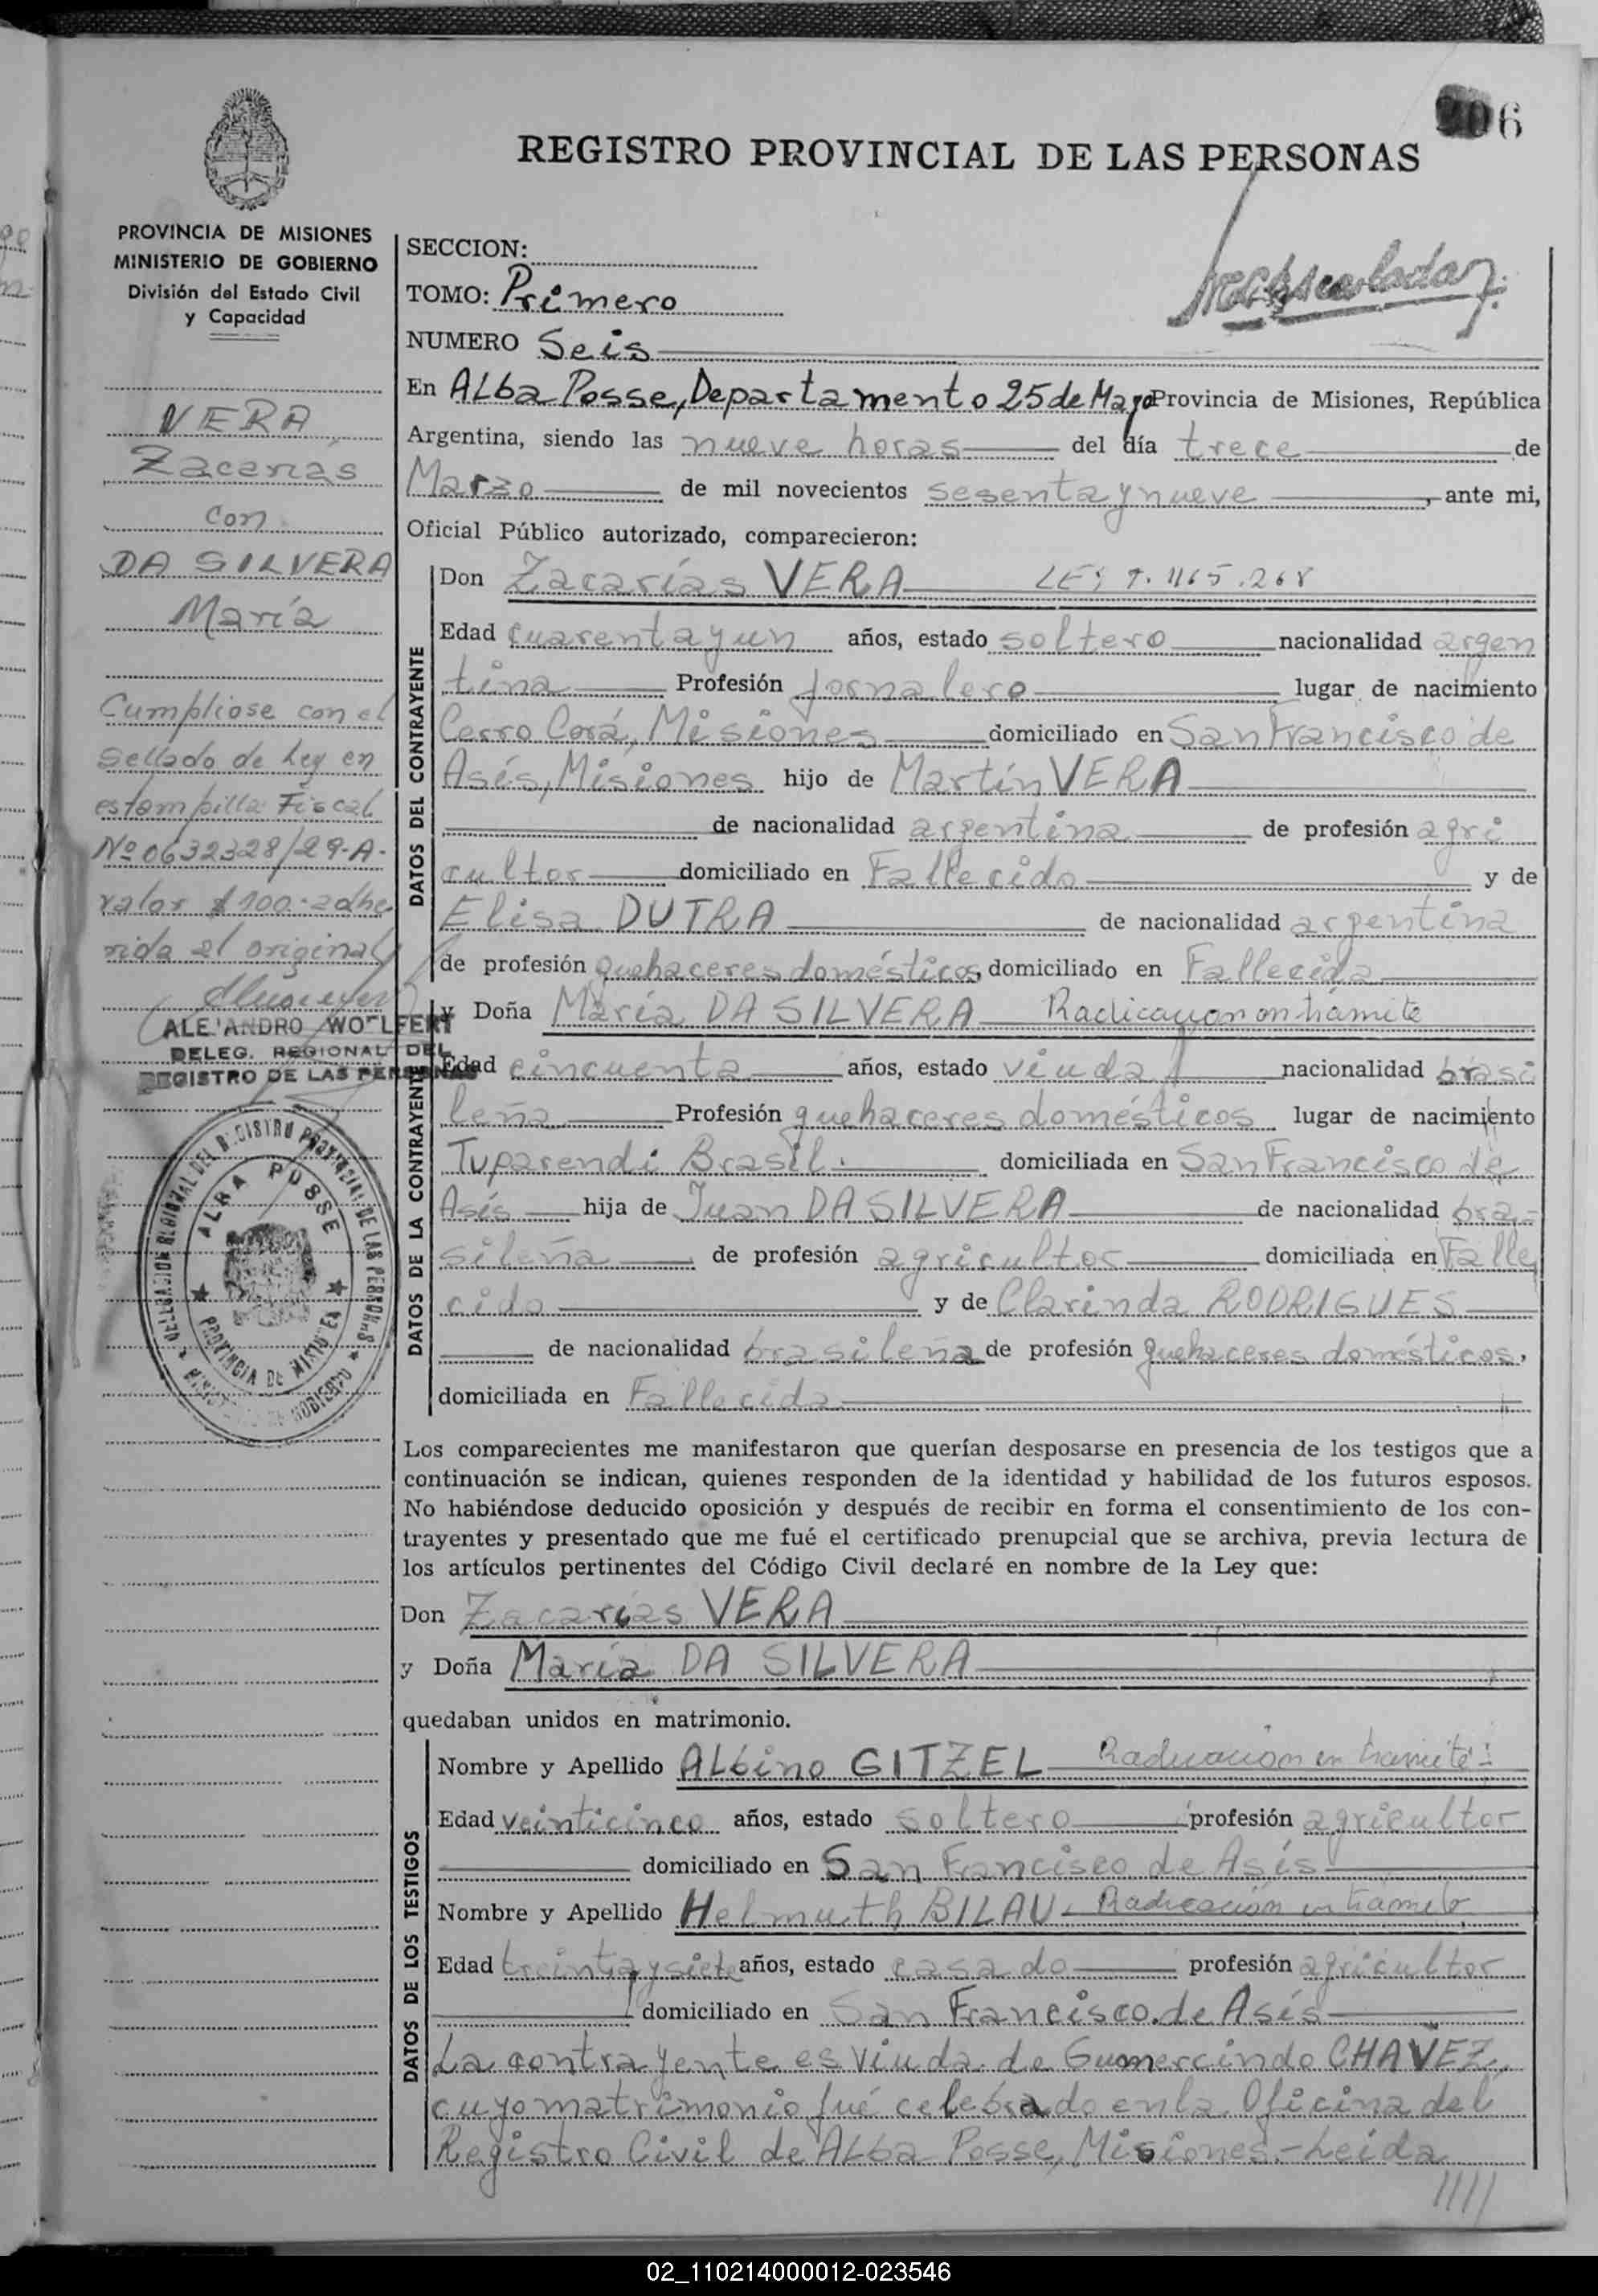 6
REGISTRO PROVINCIAL DE LAS PERSONAS
PROVINCIA DE MISIONES
MINISTERIO DE GOBIERNO
División del Estado Civil
y Capacidad
VERA
Zacarías
con
DA SILVERA
María
Cumpliose con el
sellado de Ley en
estampilla Fiscal
Nº 0632328/29-A-
valor $ 100.- adhe
rida al original
ALEJANDRO WOLFERT
DELEG. REGIONAL DEL
REGISTRO DE LAS PERSONAS
DELEGACION REGIONAL DEL REGISTRO PROVINCIAL DE LAS PERSONAS
ALBA POSSE
PROVINCIA DE MISIONES
MINISTERIO DE GOBIERNO
SECCION:
TOMO: Primero
NUMERO Seis
En ALba Posse, Departamento 25 de Mayo Provincia de Misiones, República
Argentina, siendo las nueve horas del día trece de
Marzo de mil novecientos sesenta y nueve, ante mi,
Oficial Público autorizado, comparecieron:
DATOS DEL CONTRAYENTE
Don Zacarías VERA
Edad cuarenta y un años, estado soltero nacionalidad argen
tina Profesión jornalero lugar de nacimiento
Cerro Corá, Misiones domiciliado en San Francisco de
Asís, Misiones hijo de Martín VERA
de nacionalidad argentina de profesión agri
cultor domiciliado en Fallecido y de
Elisa DUTRA de nacionalidad argentina
de profesión quehaceres domésticos, domiciliado en Fallecida
DATOS DE LA CONTRAYENTE
y Doña María DA SILVERA Radicacion en tramite
Edad cincuenta años, estado viuda nacionalidad brasi
leña Profesión quehaceres domésticos lugar de nacimiento
Tuparendi Brasil. domiciliada en San Francisco de
Asís hija de Juan DA SILVERA de nacionalidad bra-
sileña de profesión agricultor domiciliada en Falle
cido y de Clarinda RODRIGUES
de nacionalidad brasileña de profesión quehaceres domésticos,
domiciliada en Fallecida
Los comparecientes me manifestaron que querían desposarse en presencia de los testigos que a
continuación se indican, quienes responden de la identidad y habilidad de los futuros esposos.
No habiéndose deducido oposición y después de recibir en forma el consentimiento de los con-
trayentes y presentado que me fué el certificado prenupcial que se archiva, previa lectura de
los artículos pertinentes del Código Civil declaré en nombre de la Ley que:
Don Zacarías VERA
y Doña María DA SILVERA
quedaban unidos en matrimonio.
DATOS DE LOS TESTIGOS
Nombre y Apellido ALbino GITZEL Radicacion en tramite
Edad veinticinco años, estado soltero profesión agricultor
domiciliado en San Francisco de Asís
Nombre y Apellido Helmuth BILAU Radicación en tramite
Edad treinta y siete años, estado casado profesión agricultor
domiciliado en San Francisco de Asís
La contrayente es viuda de Gumercindo CHAVEZ,
cuyo matrimonio fué celebrado en la Oficina del
Registro Civil de ALba Posse, Misiones.- Leida
////
02_110214000012-023546